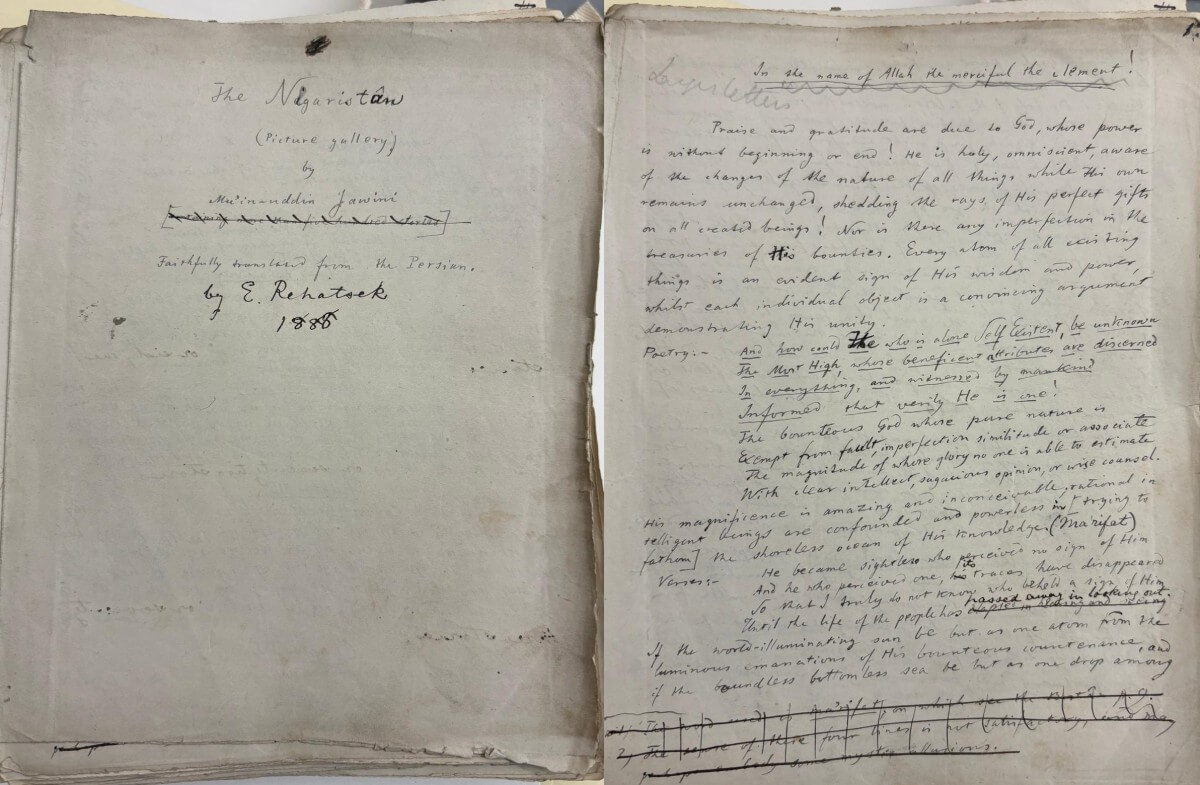 The Nigaristan
(Picture gallery)
by
Mu'inuddin Jawini
Faithfully translated from the Persian.
by E. Rehatsek
1888
perhaps
1.
In the name of Allah the merciful the clement!
Large letters
Praise and gratitude are due to God, whose power
is without beginning or end! He is holy, omniscient, aware
of the changes of the nature of all things while His own
remains unchanged, shedding the rays of His perfect gifts
on all created beings! Nor is there any imperfection in the
treasuries of His bounties. Every atom of all existing
things is an evident sign of His wisdom and power,
whilst each individual object is a convincing argument
demonstrating His unity.
Poetry:- And how could He who is alone Self Existent, be unknown
The Most High, whose beneficent attributes are discerned
In everything, and witnessed by mankind
Informed that verily He is one!
The bounteous God whose pure nature is
Exempt from fault, imperfection similitude or associate
The magnitude of whose glory no one is able to estimate
With clear intellect, sagacious opinion, or wise counsel.
His magnificence is amazing and inconceivable, rational in
telligent beings are confounded and powerless in [trying to
fathom] the shoreless ocean of His knowledge. (Ma'rifat)
Verses:- He became sightless who perceived no sign of Him
And he who perceived one, its traces have disappeared
So that I truly do not know who beheld a sign of Him
passed away in looking out.
Until the life of the people has elapsed in hearing and seeing
If the world-illuminating sun be but as one atom from the
luminous emanations of His bounteous countenance, and
if the boundless bottomless sea be but as one drop among
1) The word used is ma'rifat, on which see the
2) The sense of these four lines is not satisfactory, and may
perhaps embody some mystic allusions.